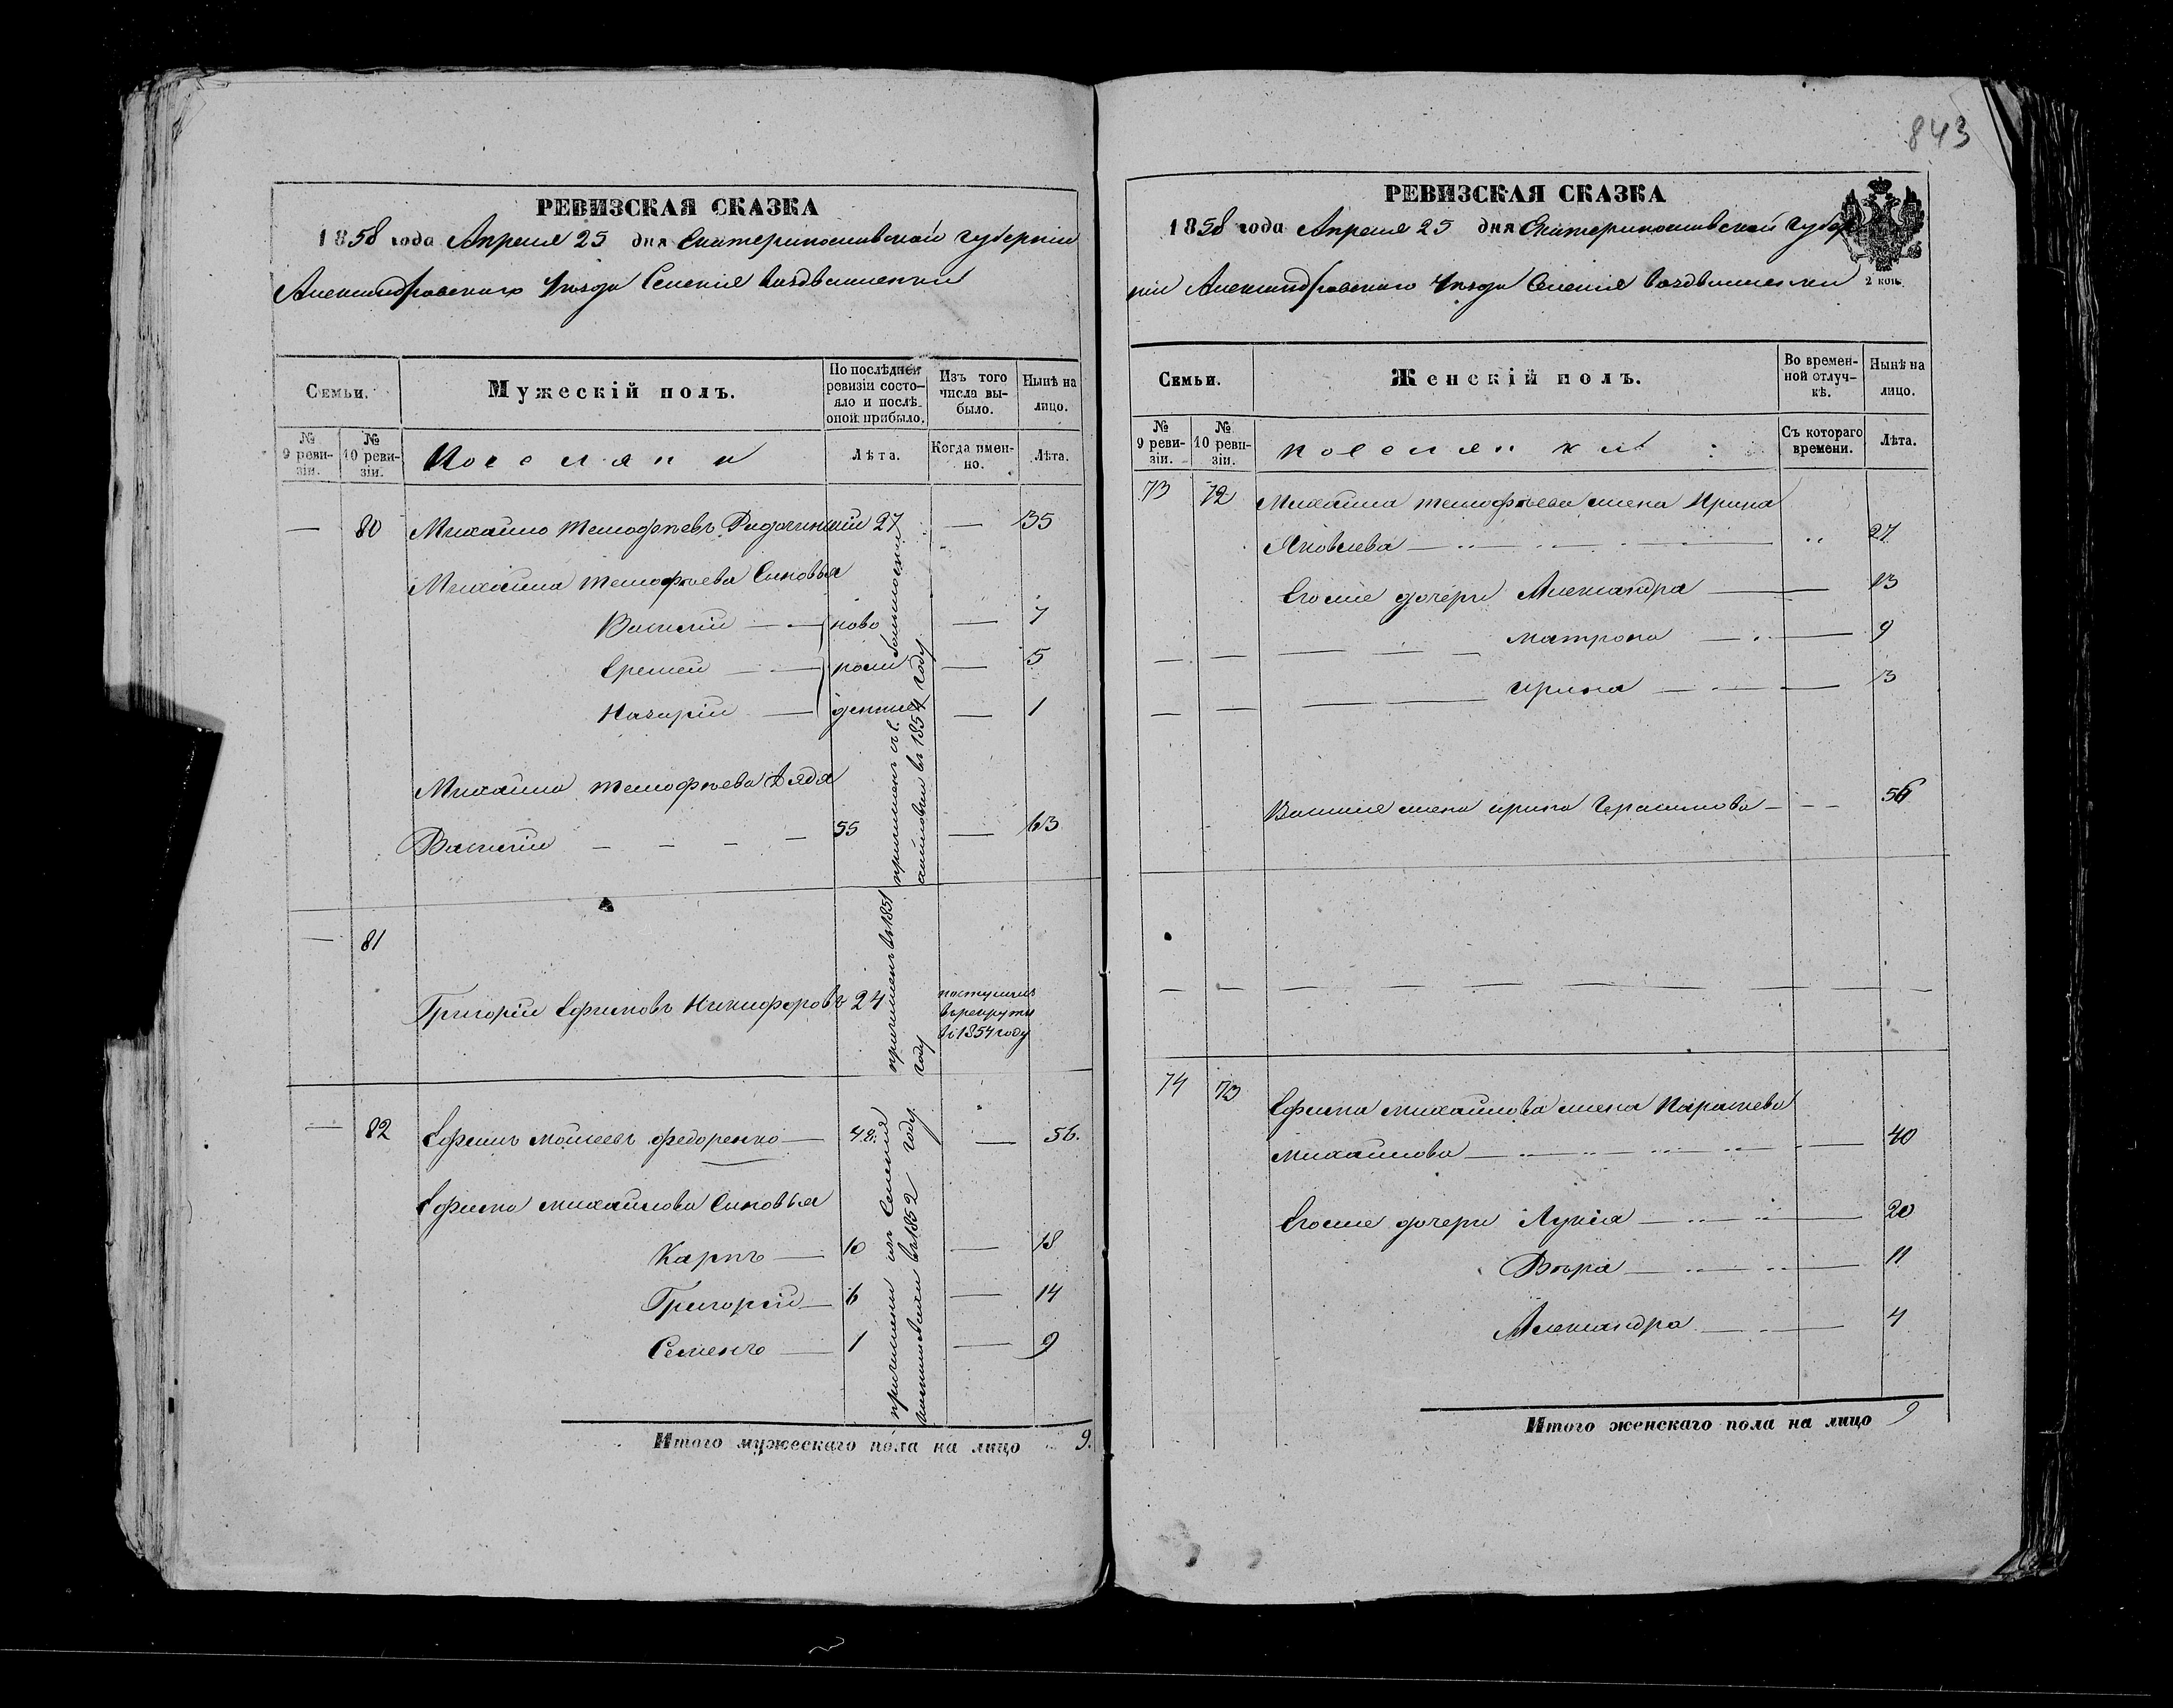 843
РЕВИЗСКАЯ СКАЗКА
1858 года Апреля 25 дня Екатеринославской губерніи
Александровскаго Уѣзда Селенія Воздвиженки
Семьи.
Мужескій полъ.
По послѣдней ревизіи состояло и послѣ оной прибыло.
Изъ того числа выбыло.
Нынѣ на лицо.
№ 9 ревизіи.
№ 10 ревизіи.
Поселяни
Лѣта.
Когда именно.
Лѣта.
— 80 Михайло Темофѣевъ 27 — 35
Михайла Темофѣева Сыновья
Василій — ново — 7
Еремей — рож — 5
Назарій — денные — 1
Михайла Темофѣева Дядя
Василій — — — — 55 — 63
причисленъ въ 1854 году
— 81
Григорій Ефимовъ Никифоровъ 24
причисленъ въ 1851
году
поступилъ
въ рекруты
въ 1854 году
— 82 Ефимъ Моисеевъ Федоренко — 48. — 56.
Ефима Михайлова Сыновья
Карпъ — 10 — 18
Григорій — 6 — 14
Семенъ — 1 — 9
причислени изъ Селенія
въ 1852 году
Итого мужескаго пола на лицо 9.
РЕВИЗСКАЯ СКАЗКА
1858 года Апреля 25 дня Екатеринославской Губер
ніи Александровскаго Уѣзда Селенія Воздвиженки
2 коп.
Семьи.
Женскій полъ.
Во временной отлучкѣ.
Нынѣ на лицо.
№ 9 ревизіи.
№ 10 ревизіи.
Поселянки
Съ котораго времени.
Лѣта.
73 72 Михайла Темофѣева жена Ирина
Яковлева — 27
Егоже дочери Александра — 13
Матрона — 9
Ирина — 3
Василія жена Ирина Герасимова — 56
74 73 Ефима Михайлова жена Параскева
Михайлова — 40
Егоже дочери Лукія — 20
Вѣра — 11
Александра — 4
Итого женскаго пола на лицо 9